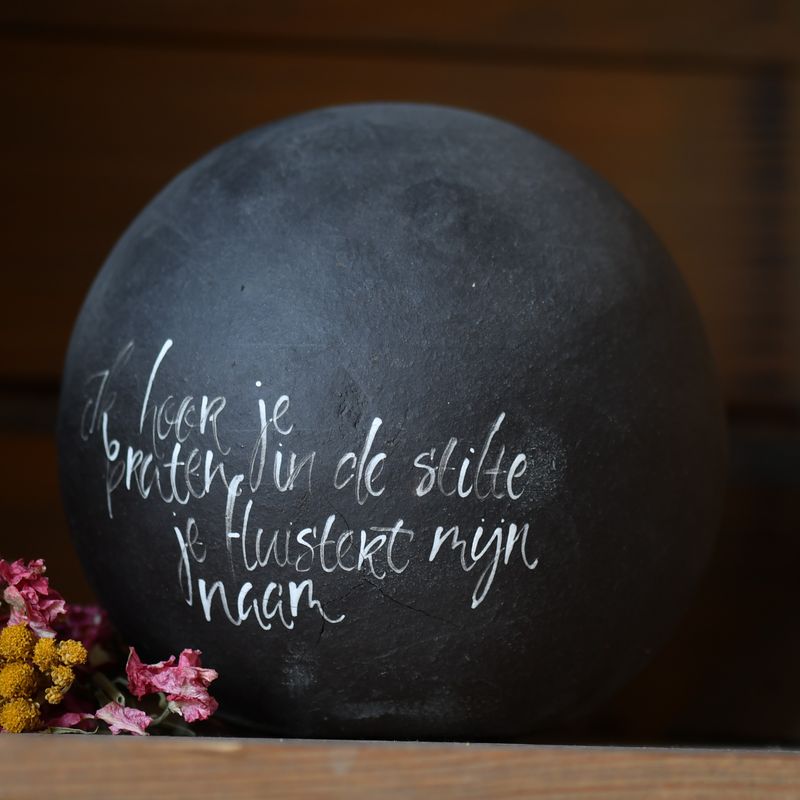 Ik hoor je
praten in de stilte
je fluistert mijn
naam